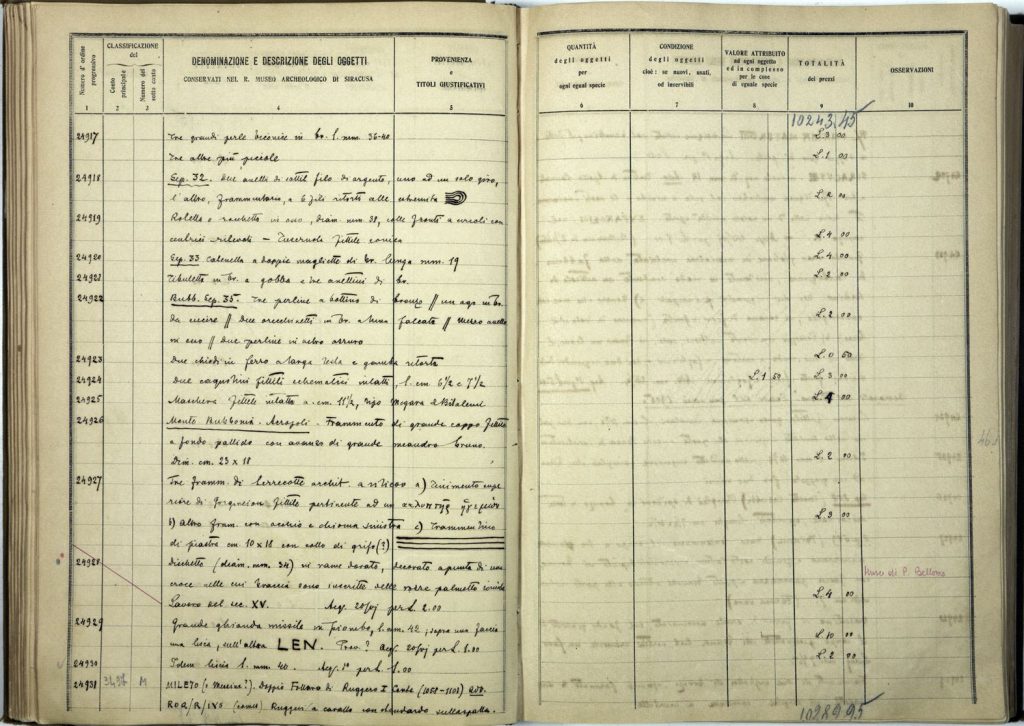 Numero d'ordine progressivo
CLASSIFICAZIONE del
Conto principale
Numero del sotto conto
DENOMINAZIONE E DESCRIZIONE DEGLI OGGETTI
CONSERVATI NEL R. MUSEO ARCHEOLOGICO DI SIRACUSA
PROVENIENZA
e
TITOLI GIUSTIFICATIVI
1 2 3 4 5
24917 Tre grandi perle biconice in br. l. mm. 36-40
Tre altre più piccole
24918 Sep. 32. due anelli di sottil filo di argento, uno ad un solo giro,
l'altro, frammentario, a 6 fili ritorti alle estremità
24919 Rotella o rocchetto in osso, diam. mm 38, colle fronti a circoli con
centrici rilevati — fittile conica
24920 Sep. 33 catenella a doppie magliette di br. lunga mm. 19
24921 Fibuletta in br. a gobba e tre anellini di br.
24922 Bubb. Sep. 35. Tre perline a bottino di bronzo // un ago in br.
da cucire // due orecchinetti in br. a luna falcata // mezzo anello
in osso // due perline in vetro azzurro
24923 Due chiodi in ferro a larga testa e gamba ritorta
24924 Due fittili intatti, l. cm 6 1/2 e 7 1/2
24925 Maschera fittile intatta a. cm. 11 1/2, tipo Megara e Bitalemi
24926 Monte Bubbonia. Acropoli. Frammento di grande coppo fittile
a fondo pallido con avanzo di grande meandro bruno.
Dim. cm. 23 x 18
24927 Tre framm. di terrecotte archit. a rilievo a)
di fittile pertinente ad un
b) Altro fram. con occhio e chioma sinistra c) Frammentino
di piastra cm 10 x 18 con collo di grifo (?)
24928 dischetto (diam. mm. 34) in rame dorato, decorato a punta di una
croce nelle cui braccia sono inscritte delle palmette
Lavoro del sec. XV. Acq. per L. 2.00
24929 Grande ghianda missile in piombo, l. mm. 42, sopra una faccia
una liscia, sull'altra LEN. Prov.? Acq. per L. 1.00
24930 Idem liscia l. mm. 40. Acq. per L. 1.00
24931 M MILETO (o Messina?). Doppio Follaro di Ruggero I Conte (1058-1101)
Ruggero a cavallo con stendardo sulla spalla.
QUANTITÀ
degli oggetti
per
ogni egual specie
CONDIZIONE
degli oggetti
cioè: se nuovi, usati,
od inservibili
VALORE ATTRIBUITO
ad ogni oggetto
ed in complesso
per le cose
di eguale specie
TOTALITÀ
dei prezzi
OSSERVAZIONI
6 7 8 9 10
10243.45
L. 3 00
L. 1 00
L. 2 00
L. 4 00
L. 4 00
L. 2 00
L. 2 00
L. 0 50
L. 1 50 L. 3 00
L. 4 00
L. 2 00
L. 3 00
di P. Bellomo
L. 4 00
L. 10 00
L. 2 00
10289.95